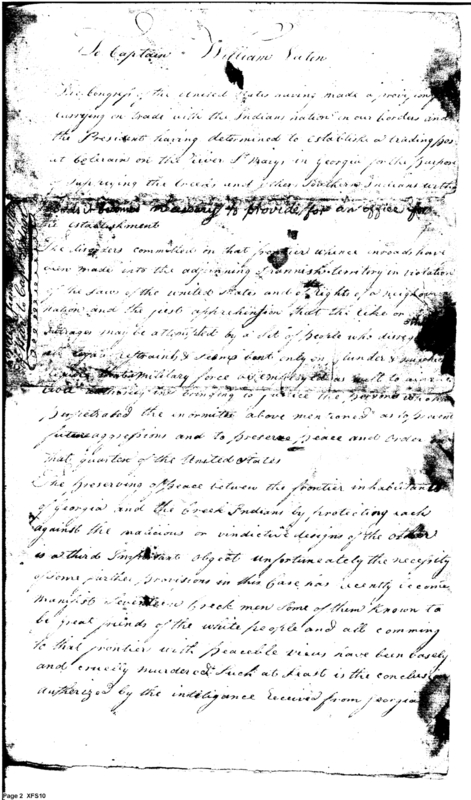 To Captain William Eaton
The Congress of the United States having made a provision for
carrying on trade with the Indians nation in our borders and
the President having determined to establish a trading post
at Colerain on the river St Marys in Georgia for the purpose
of supplying the Creeks and other Southern Indians with
goods it seems necessary to provide for an officer for
the establishment
The disorders committed in that frontier whence inroads have
been made into the adjoining Spannish territory in violation
of the Laws of the united States and the rights of a neighbor
nation and the just apprehinsion that the like or other
outrages may be attempted by a set of people who
all legal restraints & seems bent only on plunder &
military force as
authority in bringing to justice the persons who
perpetrated the inormities above mentioned as to prevent
future aggressions and to preserve peace and order in
that quarter of the United States
The preserving of peace betwen the frontier inhabitants
of Georgia and the Creek Indians by protecting each
against the malicious or vindictive designs of the other
is a third Important object unfortuneately the necessity
of some further provisions in this Case has recently become
manifest Seventeen Creek men some of them known to
be great friends of the white people and all comming
to that frontier with peaceible views have been basely
and cruelly murdered Such at least is the conclusion
authorized by the inteligance received from Georgia
Page 2 XFS10